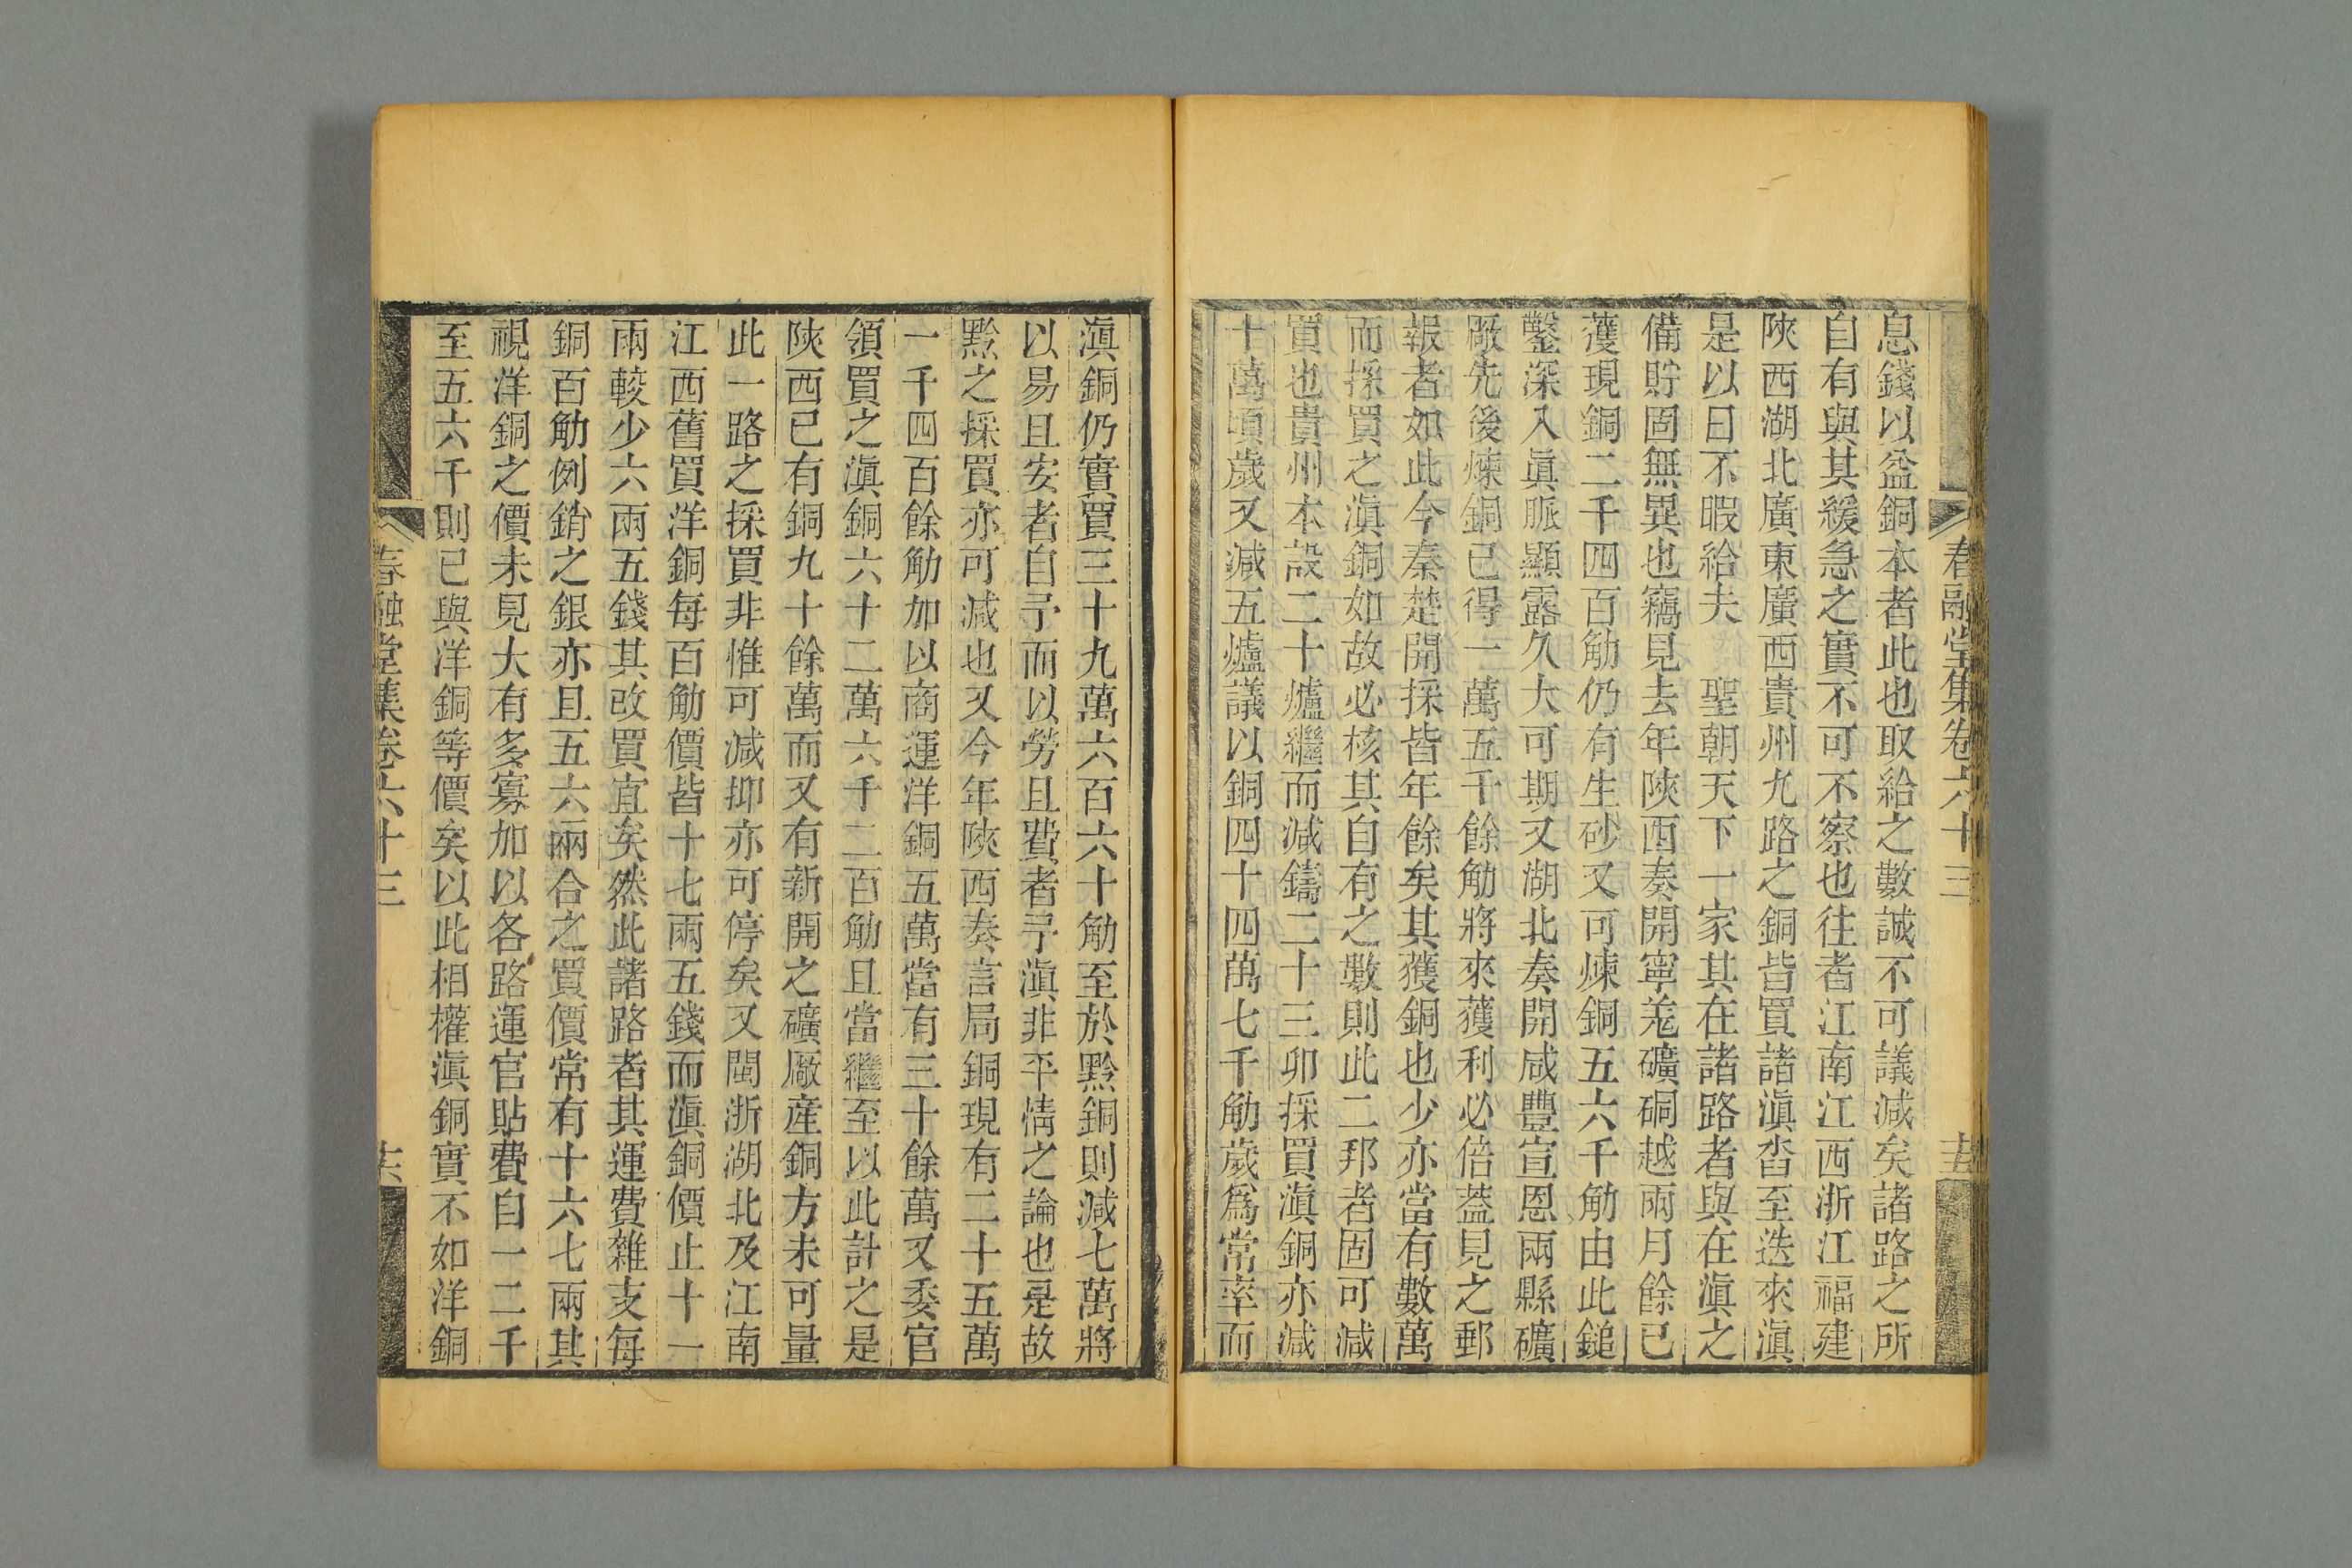 春融堂集卷六十三
息錢以益銅本者此也取給之數誠不可議減矣諸路之所
自有與其緩急之實不可不察也往者江南江西浙江福建
陝西湖北廣東廣西貴州九路之銅皆買諸滇沓至迭來滇
是以日不暇給夫 聖朝天下一家其在諸路者與在滇之
備貯固無異也竊見去年陝西奏開寧羗礦硐越兩月餘已
獲現銅二千四百觔仍有生砂又可煉銅五六千觔由此鎚
鑿深入眞脈顯露久大可期又湖北奏開咸豐宣恩兩縣礦
厰先後煉銅已得一萬五千餘觔將來獲利必倍葢見之郵
報者如此今秦楚開採皆年餘矣其獲銅也少亦當有數萬
而採買之滇銅如故必核其自有之數則此二邦者固可減
買也貴州本設二十爐繼而減鑄二十三卯採買滇銅亦減
十萬頃歲又減五爐議以銅四十四萬七千觔歲爲常率而
滇銅仍實買三十九萬六百六十觔至於黔銅則減七萬將
以易且安者自予而以勞且費者予滇非平情之論也是故
黔之採買亦可減也又今年陝西奏言局銅現有二十五萬
一千四百餘觔加以商運洋銅五萬當有三十餘萬又委官
領買之滇銅六十二萬六千二百觔且當繼至以此計之是
陝西已有銅九十餘萬而又有新開之礦厰產銅方未可量
此一路之採買非惟可減抑亦可停矣又閩浙湖北及江南
江西舊買洋銅每百觔價皆十七兩五錢而滇銅價止十一
兩較少六兩五錢其改買宜矣然此諸路者其運費雜支每
銅百觔例銷之銀亦且五六兩合之買價常有十六七兩其
視洋銅之價未見大有多寡加以各路運官貼費自一二千
至五六千則已與洋銅等價矣以此相權滇銅實不如洋銅
春融堂集卷六十三